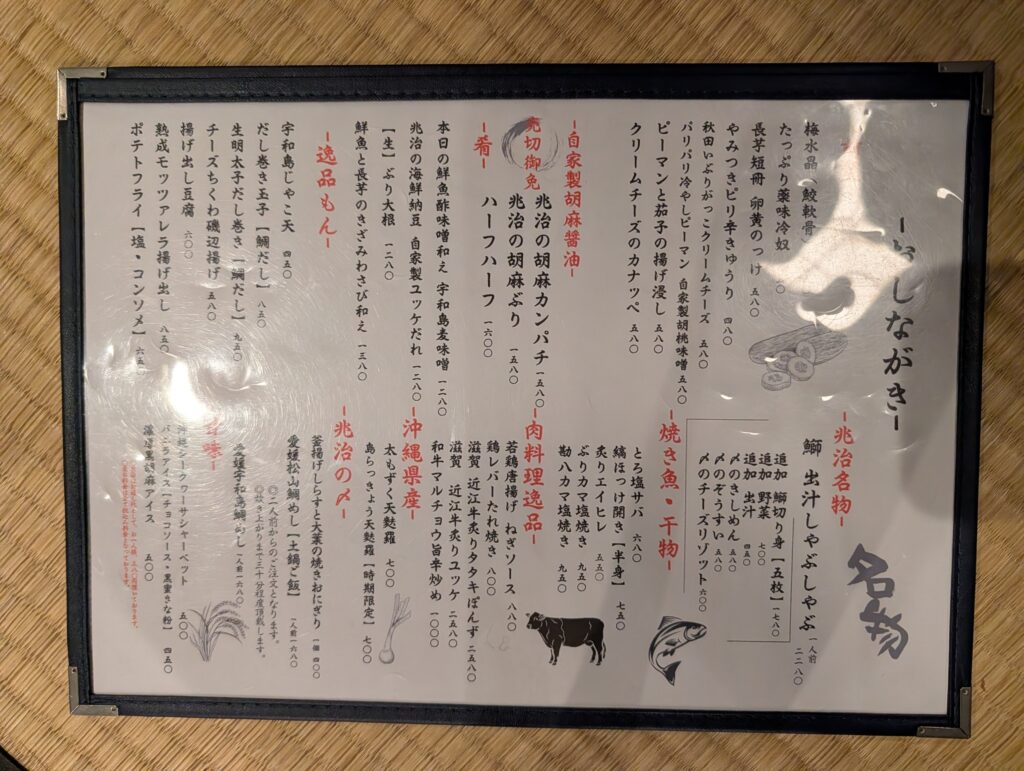 しながき-
梅水晶 鮫軟骨
たっぷり薬味冷奴
長芋短冊 卵黄のっけ 五八〇
やみつきピリ辛きゅうり 四八〇
秋田いぶりがっこクリームチーズ 五八〇
パリパリ冷やしピーマン 自家製胡桃味噌 五八〇
ピーマンと茄子の揚げ浸し 五八〇
クリームチーズのカナッペ 五八〇
-自家製胡麻醤油-
兆治の胡麻カンパチ 一五八〇
売切御免
兆治の胡麻ぶり 一五八〇
ハーフハーフ 一六〇〇
-肴-
本日の鮮魚酢味噌和え 宇和島麦味噌 一二八〇
兆治の海鮮納豆 自家製ユッケだれ 一二八〇
【生】ぶり大根 一二八〇
鮮魚と長芋のきざみわさび和え 一三八〇
-逸品もん-
宇和島じゃこ天 四五〇
だし巻き玉子【鯛だし】 八五〇
生明太子だし巻き【鯛だし】 九五〇
チーズちくわ磯辺揚げ 五八〇
揚げ出し豆腐 六〇〇
熟成モッツァレラ揚げ出し 八五〇
ポテトフライ【塩・コンソメ】 六五〇
-兆治名物-
名物
鰤 出汁しゃぶしゃぶ 一人前 二二八〇
追加 鰤切り身【五枚】 一七八〇
追加 野菜 七〇〇
追加 出汁 四五〇
〆のきしめん 五八〇
〆のぞうすい 五八〇
〆のチーズリゾット 六〇〇
-焼き魚・干物-
とろ塩サバ 六八〇
縞ほっけ開き【半身】 七五〇
炙りエイヒレ 五五〇
ぶりカマ塩焼き 九五〇
勘八カマ塩焼き 九五〇
-肉料理逸品-
若鶏唐揚げ ねぎソース 八八〇
鶏レバーたれ焼き 八〇〇
滋賀 近江牛炙りタタキぽんず 二五八〇
滋賀 近江牛炙りユッケ 二五八〇
和牛マルチョウ旨辛炒め 一〇〇〇
-沖縄県産-
太もずく天麩羅 七〇〇
島らっきょう天麩羅【時期限定】 七〇〇
-兆治の〆-
釜揚げしらすと大葉の焼きおにぎり 一個 四〇〇
愛媛松山鯛めし【土鍋ご飯】 一人前一六八〇
◎二人前からのご注文となります。
◎炊き上がりまで三十分程度頂戴します。
愛媛宇和島鯛めし 一人前一六八〇
味-
沖縄シークワーサーシャーベット 五〇〇
バニラアイス【チョコソース・黒蜜きな粉】 四五〇
濃厚黒胡麻アイス 五〇〇